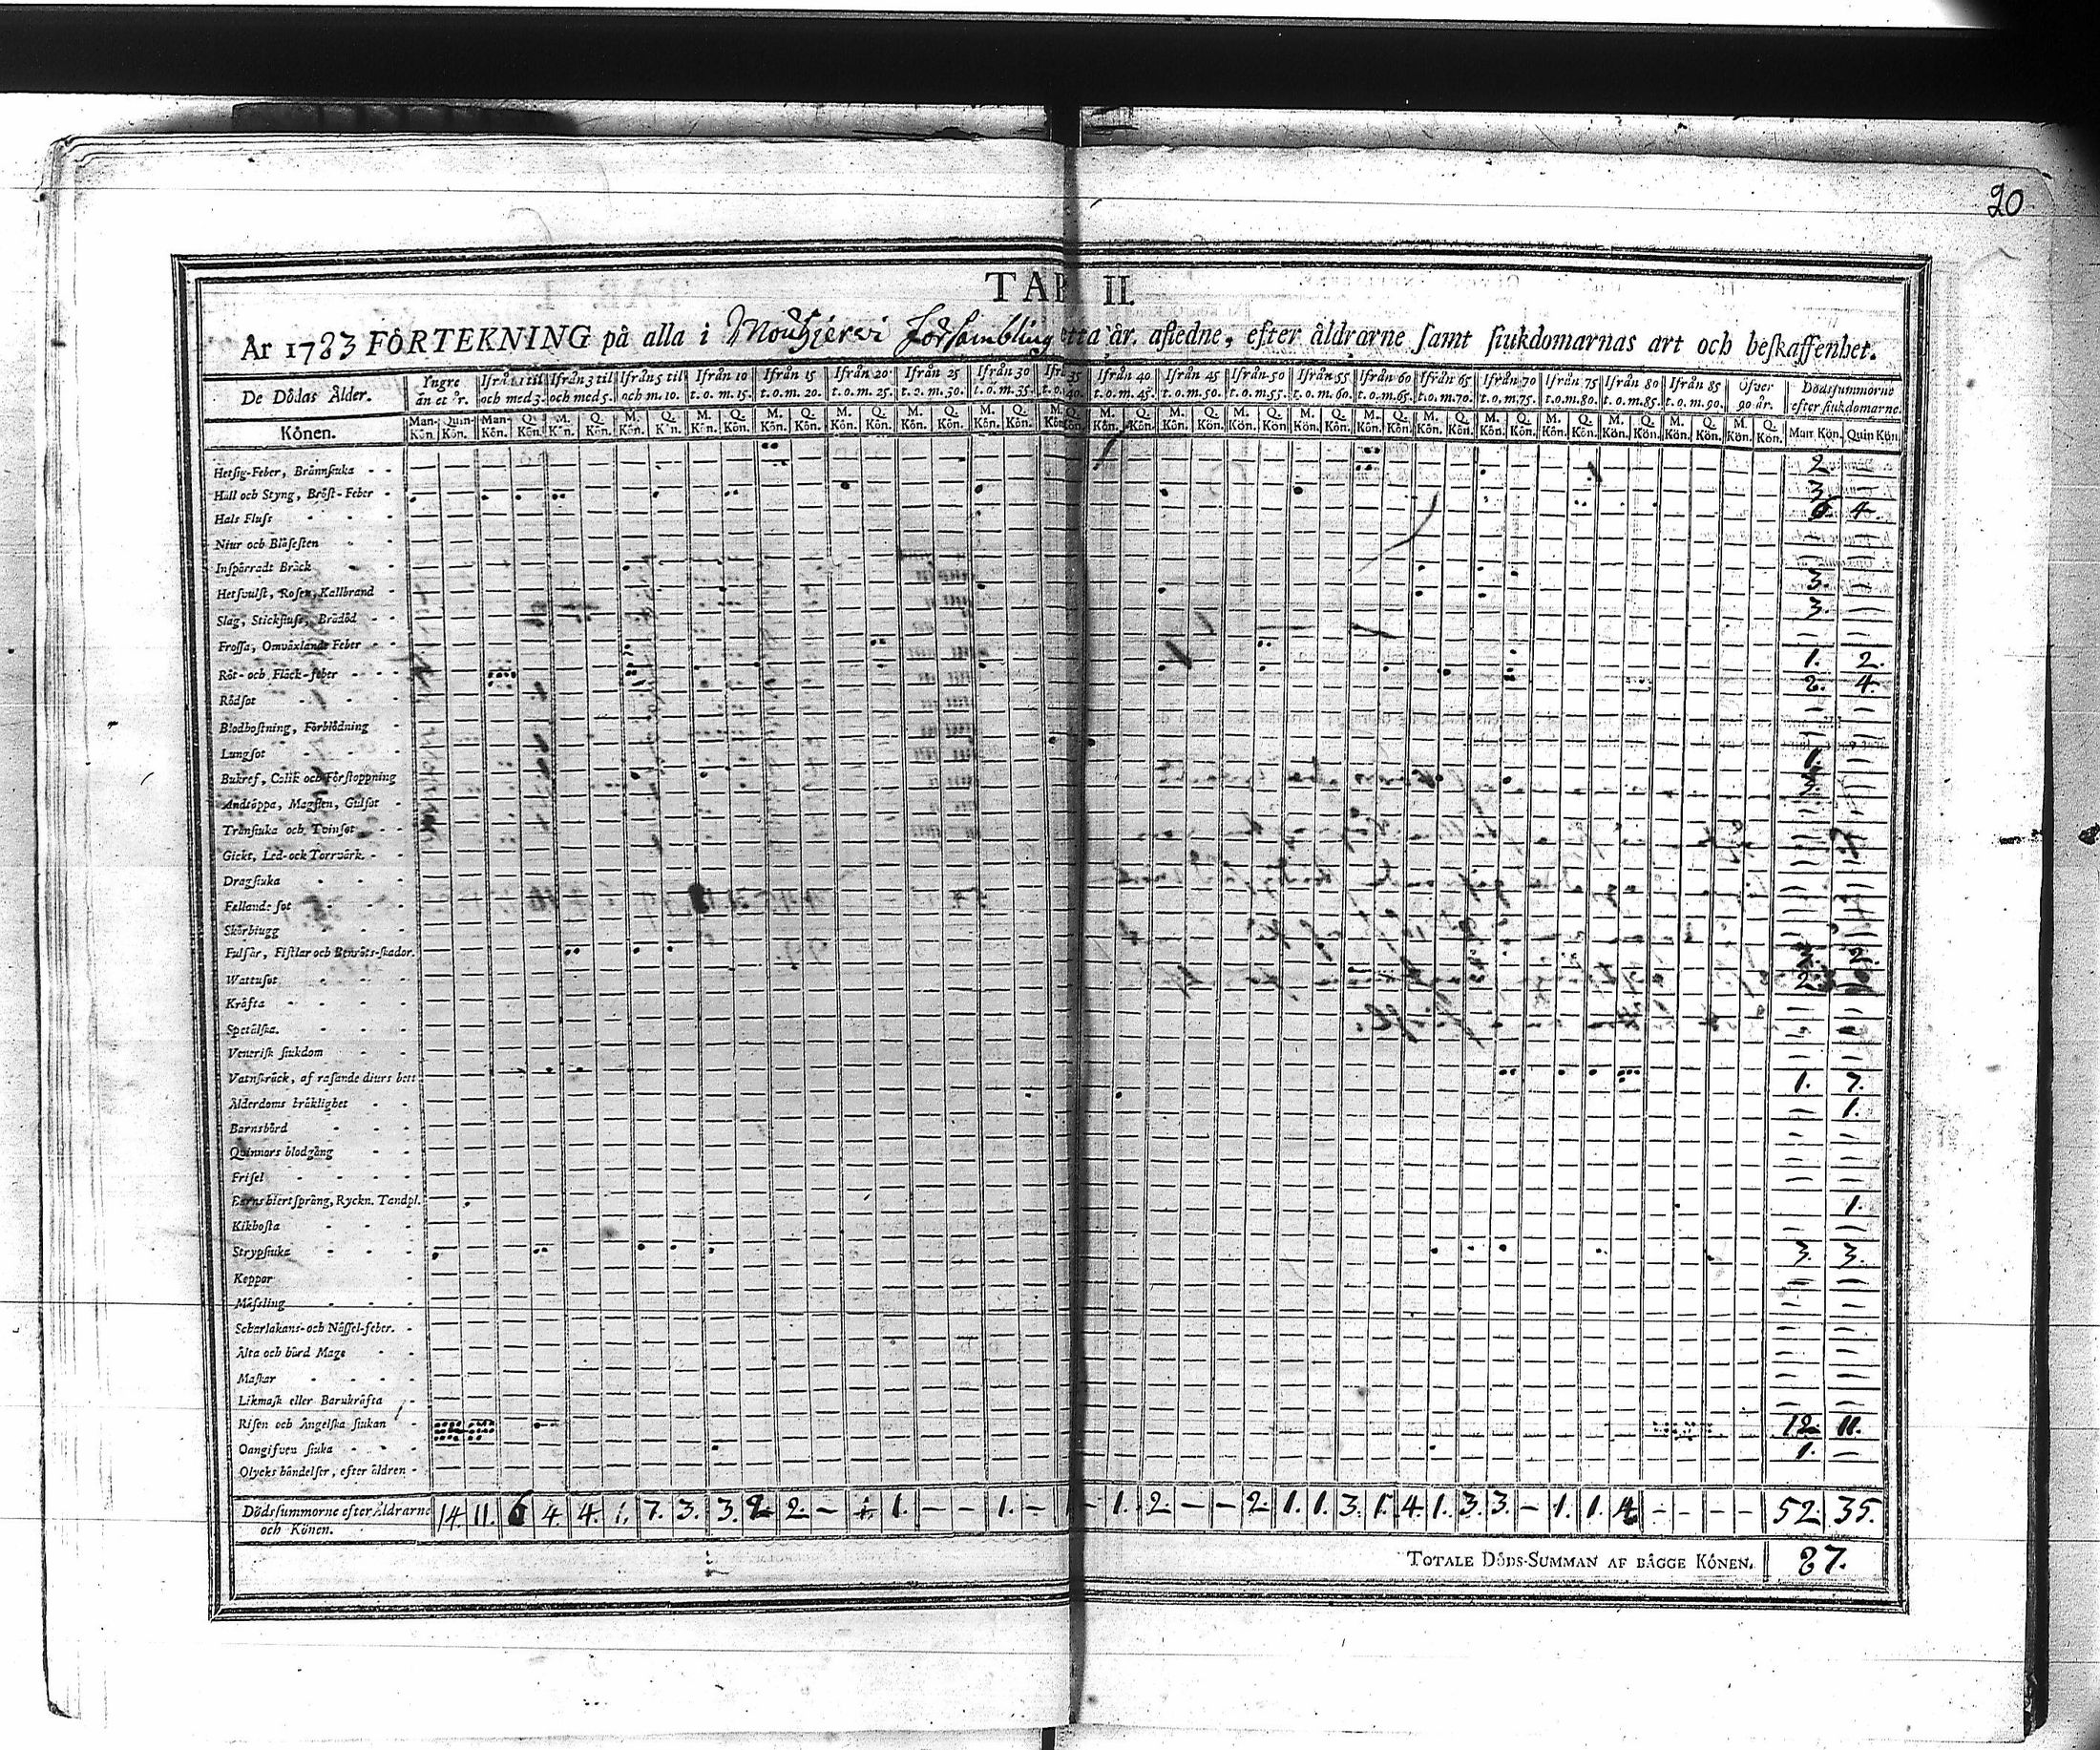 20
TAB II.
År 1783 FÖRTEKNING på alla i Mouhijerwi Försambling detta år, afledne, efter åldrarne samt siukdomarnas art och beskaffenhet.
De Dödas Ålder. Yngre än et år. Ifrån 1 til och med 3. Ifrån 3 til och med 5. Ifrån 5 til och m. 10. Ifrån 10 t. o. m. 15. Ifrån 15 t. o. m. 20. Ifrån 20 t. o. m. 25. Ifrån 25 t. o. m. 30. Ifrån 30 t. o. m. 35. Ifrån 35 t. o. m. 40. Ifrån 40 t. o. m. 45. Ifrån 45 t. o. m. 50. Ifrån 50 t. o. m. 55. Ifrån 55 t. o. m. 60. Ifrån 60 t. o. m. 65. Ifrån 65 t. o. m. 70. Ifrån 70 t. o. m. 75. Ifrån 75 t. o. m. 80. Ifrån 80 t. o. m. 85. Ifrån 85 t. o. m. 90. Öfver 90 år. Dödssummorne efter siukdomarne.
Könen. Man-Kön. Quin-Kön. Man-Kön. Q. Kön. M. Kön. Q. Kön. M. Kön. Q. Kön. Man Kön. Quin Kön.
Hetsig-Feber, Brännsiuka 2
Håll och Styng, Bröst-Feber
Hals Fluss 4.
Niur och Blåsesten
Inspärradt Bråck
Hetsvulst, Rosen, Kallbrand 3.
Slag, Stickfluss, Brådöd 3.
Frossa, Omväxlande Feber 1. 2.
Röt- och Fläck-feber 2. 4.
Rödsot
Blodhostning, Förblödning
Lungsot 1.
Bukref, Colik och Förstoppning 3.
Andtäppa, Magsten, Gulsot
Trånsiuka och Tvinsot
Gickt, Led-och Torrvärk.
Dragsiuka
Fallande sot
Skörbiugg
Fulsår, Fistlar och Benröts-skador.
Wattusot 2.
Kräfta
Spetälska.
Venerisk siukdom
Vatnskräck, af rasande diurs bett
Ålderdoms bräklighet 1. 7.
Barnsbörd 1.
Quinnors blodgång
Frisel
Barns biertspräng, Ryckn. Tandpl. 1.
Kikhosta
Strypsiuka 3. 3.
Koppor
Mässling
Scharlakans-och Nässel-feber.
Älta och bård Mage
Maskar
Likmask eller Barukräfta
Risen och Ängelska siukan 12. 11.
Oangifven siuka 1.
Olycks händelser, efter äldren
Dödssummorne efter Åldrarne och Könen. 14. 11. 6 4. 4. 1. 7. 3. 3. 2. 2. – 1. 1. – – 1. – 1 – 1. 2. – – 2. 1. 1. 3. 1. 4. 1. 3. 3. – 1. 1. 4 – – – – 52. 35.
TOTALE DÖDS-SUMMAN AF BÄGGE KÖNEN. 87.